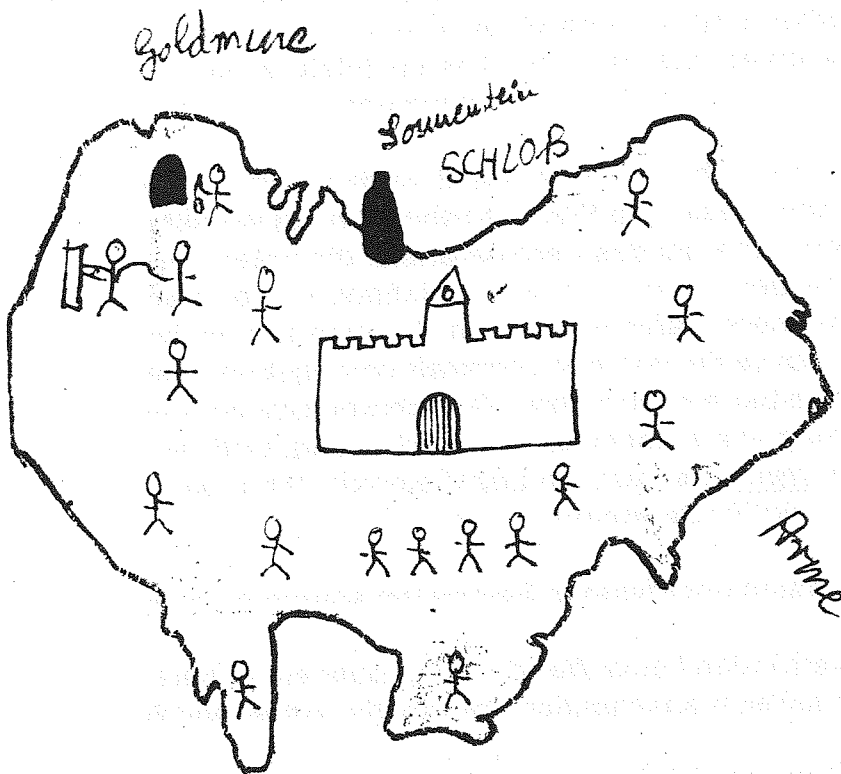 Goldmine
Sonnenstein
SCHLOß
Arme